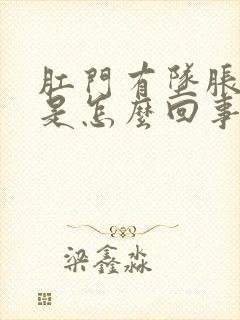 肛門有墜脹
是怎麼回事
梁鑫淼